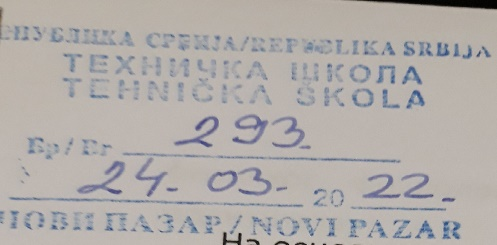 РЕПУБЛИКА СРБИЈА/REPUBLIKA SRBIJA
ТЕХНИЧКА ШКОЛА
TEHNIČKA ŠKOLA
Бр/Br 293.
24. 03. 20 22.
НОВИ ПАЗАР/NOVI PAZAR
На основ